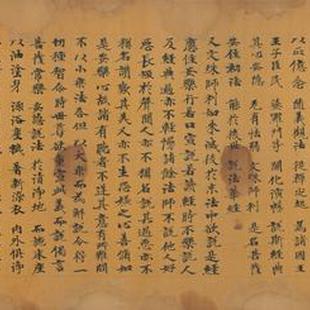 以正憶念 隨義觀法 從禪定起 為諸國王
王子臣民 婆羅門等 開化演暢 說斯經典
其心安隱 無有怯弱 文殊師利 是名菩薩
安住初法 能於後世 說法華經
又文殊師利如來滅後於末法中欲說是經
應住安樂行若口宣說若讀經時不樂說人
及經典過亦不輕慢諸餘法師不說他人好
惡長短於聲聞人亦不稱名說其過惡亦不
稱名讚歎其美又亦不生怨嫌之心善修如
是安樂心故諸有聽者不逆其意有所難問
不以小乘法答但以大乘而為解說令得一
切種智爾時世尊欲重宣此義而說偈言
菩薩常樂 安隱說法 於清淨地 而施床座
以油塗身 澡浴塵穢 著新淨衣 內外俱淨